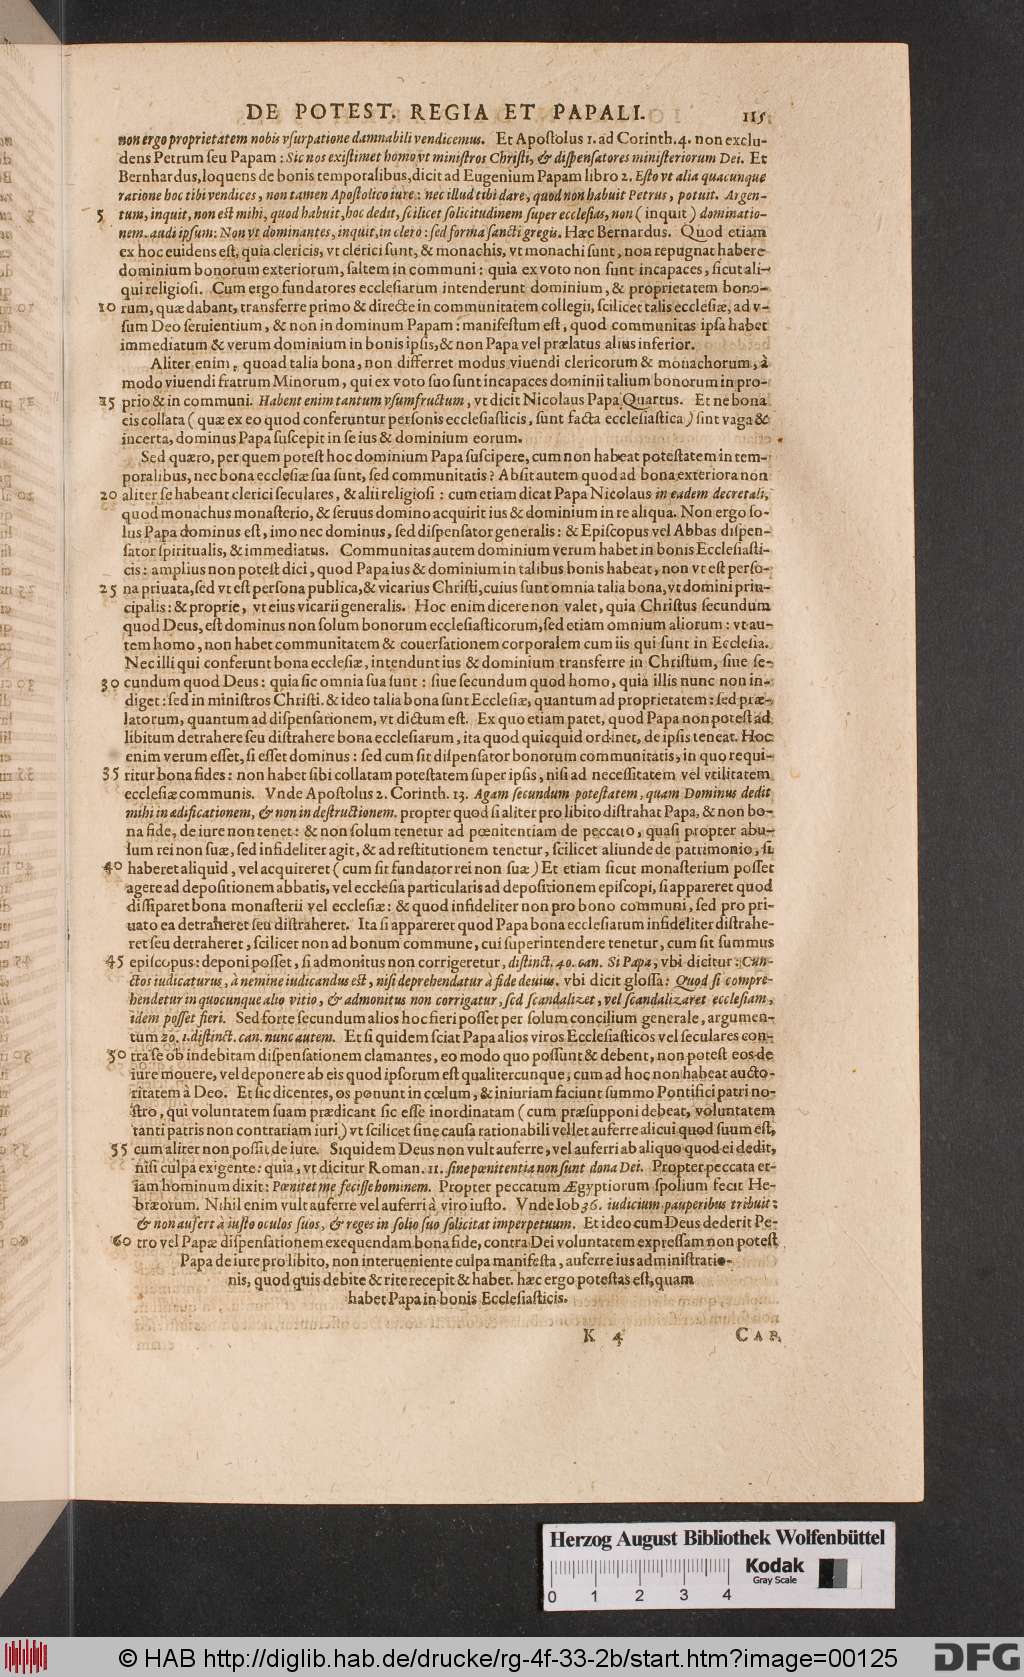 DE POTEST. REGIA ET PAPALI. 115
non ergo proprietatem nobis vſurpatione damnabili vendicemus. Et Apoſtolus 1. ad Corinth. 4. non exclu-
dens Petrum ſeu Papam : Sic nos exiſtimet homo vt miniſtros Chriſti, & diſpenſatores miniſteriorum Dei. Et
Bernhardus, loquens de bonis temporalibus, dicit ad Eugenium Papam libro 2. Eſto vt alia quacunque
ratione hoc tibi vendices, non tamen Apoſtolico iure : nec illud tibi dare, quod non habuit Petrus, potuit. Argen-
5 tum, inquit, non eſt mihi, quod habuit, hoc dedit, ſcilicet ſolicitudinem ſuper eccleſias, non ( inquit ) dominatio-
nem. audi ipſum: Non vt dominantes, inquit, in clero : ſed forma ſancti gregis. Hæc Bernardus. Quod etiam
ex hoc euidens eſt, quia clericis, vt clerici ſunt, & monachis, vt monachi ſunt, non repugnat habere
dominium bonorum exteriorum, ſaltem in communi : quia ex voto non ſunt incapaces, ſicut ali-
qui religioſi. Cum ergo fundatores eccleſiarum intenderunt dominium, & proprietatem bono-
10 rum, quæ dabant, transferre primo & directe in communitatem collegii, ſcilicet talis eccleſiæ, ad v-
ſum Deo ſeruientium, & non in dominum Papam : manifeſtum eſt, quod communitas ipſa habet
immediatum & verum dominium in bonis ipſis, & non Papa vel prælatus alius inferior.
Aliter enim, quoad talia bona, non differret modus viuendi clericorum & monachorum, à
modo viuendi fratrum Minorum, qui ex voto ſuo ſunt incapaces dominii talium bonorum in pro-
15 prio & in communi. Habent enim tantum vſumfructum, vt dicit Nicolaus Papa Quartus. Et ne bona
eis collata ( quæ ex eo quod conferuntur perſonis eccleſiaſticis, ſunt facta eccleſiaſtica ) ſint vaga &
incerta, dominus Papa ſuſcepit in ſe ius & dominium eorum.
Sed quæro, per quem poteſt hoc dominium Papa ſuſcipere, cum non habeat poteſtatem in tem-
poralibus, nec bona eccleſiæ ſua ſunt, ſed communitatis ? Abſit autem quod ad bona exteriora non
20 aliter ſe habeant clerici ſeculares, & alii religioſi : cum etiam dicat Papa Nicolaus in eadem decretali,
quod monachus monaſterio, & ſeruus domino acquirit ius & dominium in re aliqua. Non ergo ſo-
lus Papa dominus eſt, imo nec dominus, ſed diſpenſator generalis : & Epiſcopus vel Abbas diſpen-
ſator ſpiritualis, & immediatus. Communitas autem dominium verum habet in bonis Eccleſiaſti-
cis : amplius non poteſt dici, quod Papa ius & dominium in talibus bonis habeat, non vt eſt perſo-
25 na priuata, ſed vt eſt perſona publica, & vicarius Chriſti, cuius ſunt omnia talia bona, vt domini prin-
cipalis : & proprie, vt eius vicarii generalis. Hoc enim dicere non valet, quia Chriſtus ſecundum
quod Deus, eſt dominus non ſolum bonorum eccleſiaſticorum, ſed etiam omnium aliorum : vt au-
tem homo, non habet communitatem & couerſationem corporalem cum iis qui ſunt in Eccleſia.
Nec illi qui conferunt bona eccleſiæ, intendunt ius & dominium transferre in Chriſtum, ſiue ſe-
30 cundum quod Deus : quia ſic omnia ſua ſunt : ſiue ſecundum quod homo, quia illis nunc non in-
diget : ſed in miniſtros Chriſti. & ideo talia bona ſunt Eccleſiæ, quantum ad proprietatem : ſed præ-
latorum, quantum ad diſpenſationem, vt dictum eſt. Ex quo etiam patet, quod Papa non poteſt ad
libitum detrahere ſeu diſtrahere bona eccleſiarum, ita quod quicquid ordinet, de ipſis teneat. Hoc
enim verum eſſet, ſi eſſet dominus : ſed cum ſit diſpenſator bonorum communitatis, in quo requi-
35 ritur bona fides : non habet ſibi collatam poteſtatem ſuper ipſis, niſi ad neceſſitatem vel vtilitatem
eccleſiæ communis. Vnde Apoſtolus 2. Corinth. 13. Agam ſecundum poteſtatem, quam Dominus dedit
mihi in ædificationem, & non in deſtructionem. propter quod ſi aliter pro libito diſtrahat Papa, & non bo-
na fide, de iure non tenet : & non ſolum tenetur ad pœnitentiam de peccato, quaſi propter abu-
ſum rei non ſuæ, ſed infideliter agit, & ad reſtitutionem tenetur, ſcilicet aliunde de patrimonio, ſi
40 haberet aliquid, vel acquireret ( cum ſit fundator rei non ſuæ ) Et etiam ſicut monaſterium poſſet
agere ad depoſitionem abbatis, vel eccleſia particularis ad depoſitionem epiſcopi, ſi appareret quod
diſſiparet bona monaſterii vel eccleſiæ : & quod infideliter non pro bono communi, ſed pro pri-
uato ea detraheret ſeu diſtraheret. Ita ſi appareret quod Papa bona eccleſiarum infideliter diſtrahe-
ret ſeu detraheret, ſcilicet non ad bonum commune, cui ſuperintendere tenetur, cum ſit ſummus
45 epiſcopus : deponi poſſet, ſi admonitus non corrigeretur, diſtinct. 40. can. Si Papa, vbi dicitur : Cun-
ctos iudicaturus, à nemine iudicandus eſt, niſi deprehendatur à fide deuius. vbi dicit gloſſa : Quod ſi compre-
hendetur in quocunque alio vitio, & admonitus non corrigatur, ſed ſcandalizet, vel ſcandalizaret eccleſiam,
idem poſſet fieri. Sed forte ſecundum alios hoc fieri poſſet per ſolum concilium generale, argumen-
tum 20. 1. diſtinct. can. nunc autem. Et ſi quidem ſciat Papa alios viros Eccleſiaſticos vel ſeculares con-
50 tra ſe ob indebitam diſpenſationem clamantes, eo modo quo poſſunt & debent, non poteſt eos de
iure mouere, vel deponere ab eis quod ipſorum eſt qualitercunque, cum ad hoc non habeat aucto-
ritatem à Deo. Et ſic dicentes, os ponunt in cœlum, & iniuriam faciunt ſummo Pontifici patri no-
ſtro, qui voluntatem ſuam prædicant ſic eſſe inordinatam ( cum præſupponi debeat, voluntatem
tanti patris non contrariam iuri ) vt ſcilicet ſine cauſa rationabili vellet auferre alicui quod ſuum eſt,
55 cum aliter non poſſit de iure. Siquidem Deus non vult auferre, vel auferri ab aliquo quod ei dedit,
niſi culpa exigente : quia, vt dicitur Roman. 11. ſine pœnitentia non ſunt dona Dei. Propter peccata et-
iam hominum dixit : Pœnitet me feciſſe hominem. Propter peccatum Ægyptiorum ſpolium fecit He-
bræorum. Nihil enim vult auferre vel auferri à viro iuſto. Vnde Iob 36. iudicium pauperibus tribuit :
& non aufert à iuſto oculos ſuos, & reges in ſolio ſuo ſolicitat imperpetuum. Et ideo cum Deus dederit Pe-
60 tro vel Papæ diſpenſationem exequendam bona fide, contra Dei voluntatem expreſſam non poteſt
Papa de iure pro libito, non interueniente culpa manifeſta, auferre ius adminiſtratio-
nis, quod quis debite & rite recepit & habet. hæc ergo poteſtas eſt, quam
habet Papa in bonis Eccleſiaſticis.
K 4 CAP.
Herzog August Bibliothek Wolfenbüttel
Kodak
Gray Scale
0 1 2 3 4
© HAB http://diglib.hab.de/drucke/rg-4f-33-2b/start.htm?image=00125
DFG